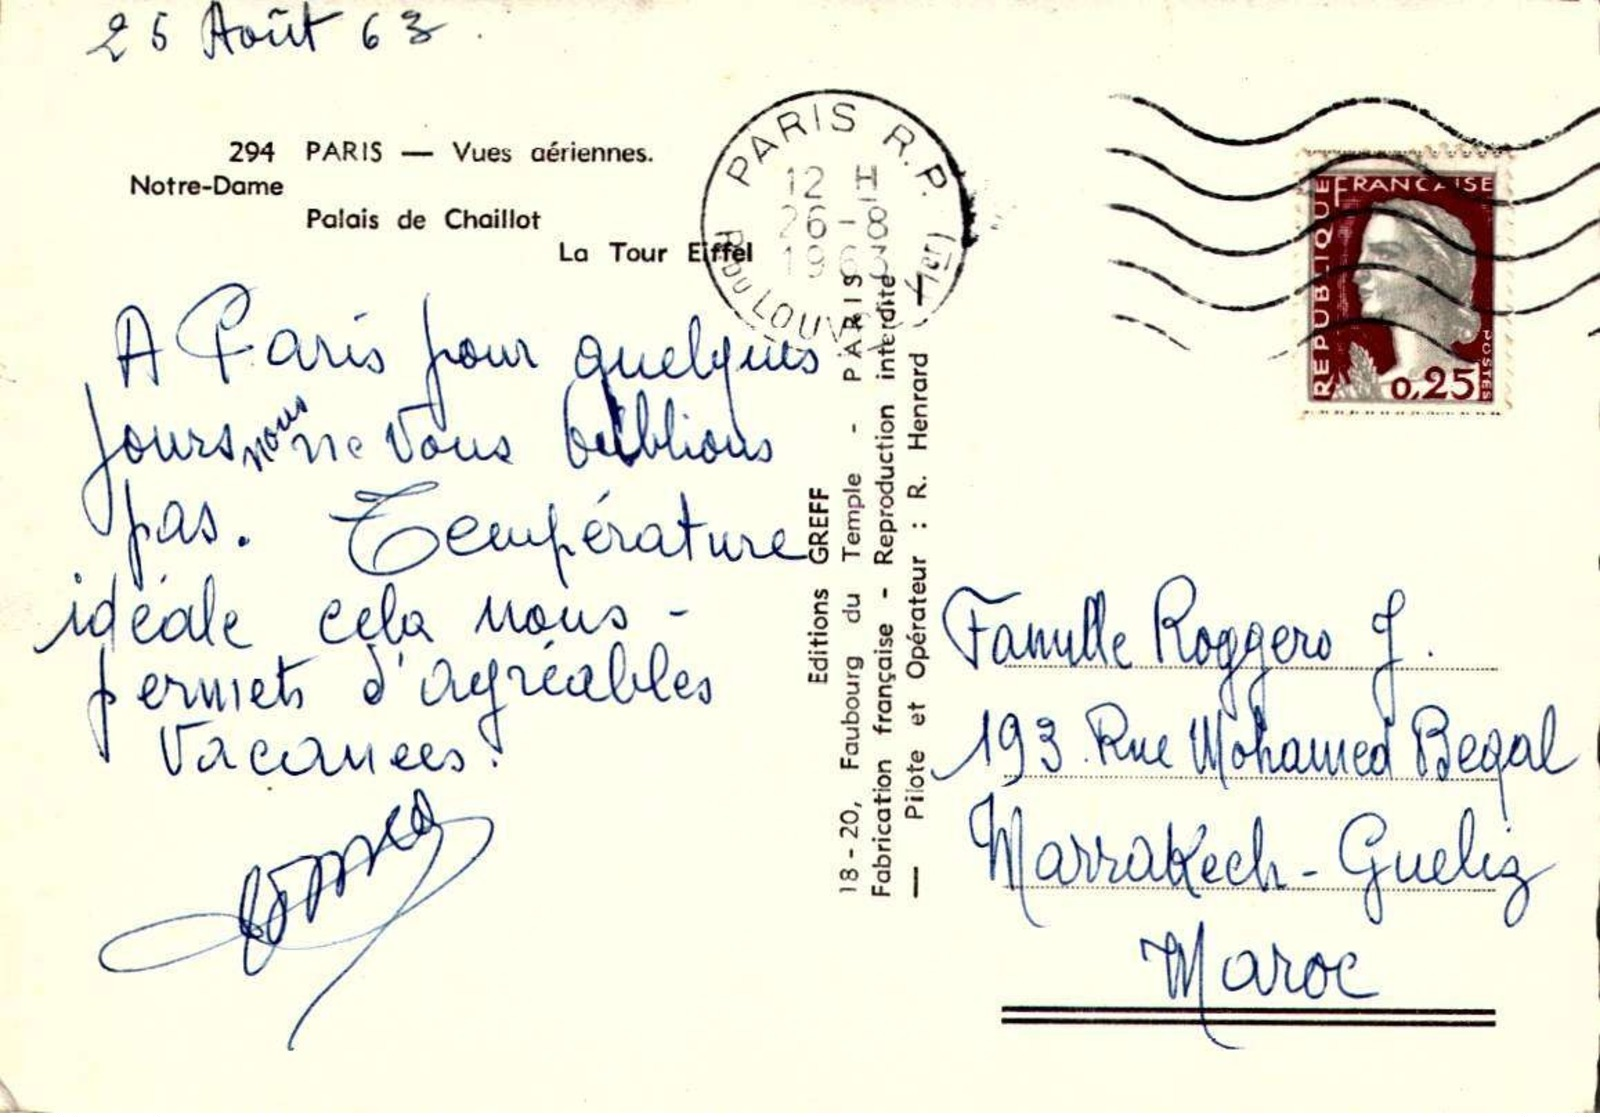 25 Août 63.
294 PARIS — Vues aériennes.
Notre-Dame
Palais de Chaillot
La Tour Eiffel
A Paris pour quelques
jours nous ne vous oublions
pas. Température
idéale cela nous -
permets d'agréables
Vacances.
PARIS R.P.
12 H
26-8
1963
R. DU LOUVRE (1er)
REPUBLIQUE FRANCAISE
POSTES
0,25
Editions GREFF
18-20, Faubourg du Temple - PARIS
Fabrication française - Reproduction interdite
— Pilote et Opérateur : R. Henrard —
Famille Roggero J.
193 Rue Mohamed Beqal
Marrakech - Gueliz
Maroc